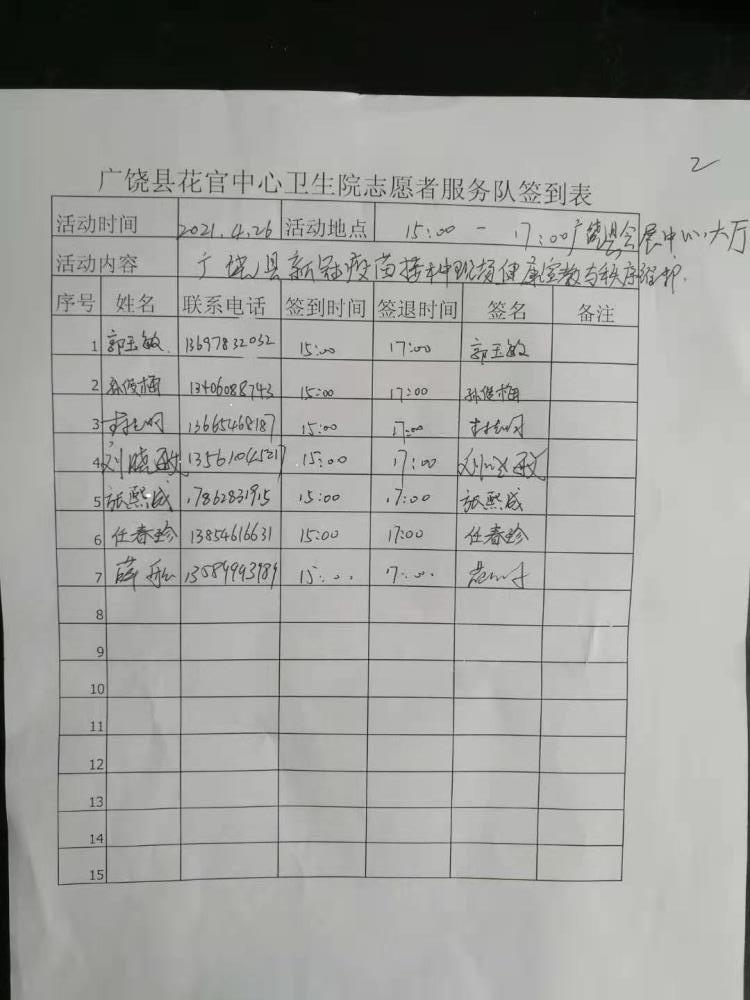 2
广饶县花官中心卫生院志愿者服务队签到表
活动时间 2021.4.26 活动地点 15:00 - 17:00 广饶县会展中心大厅
活动内容 广饶县新冠疫苗接种现场健康宣教与秩序维护.
序号 姓名 联系电话 签到时间 签退时间 签名 备注
1 郭玉敏 13697832032 15:00 17:00 郭玉敏
2 孙俊梅 13406088743 15:00 17:00 孙俊梅
3 13665468187 15:00 17:00
4 刘晓敏 13561045217 15:00 17:00
5 张熙成 17862831915 15:00 17:00 张熙成
6 任春珍 13854616631 15:00 17:00 任春珍
7 薛 13589993989 15:00 17:00
8
9
10
11
12
13
14
15